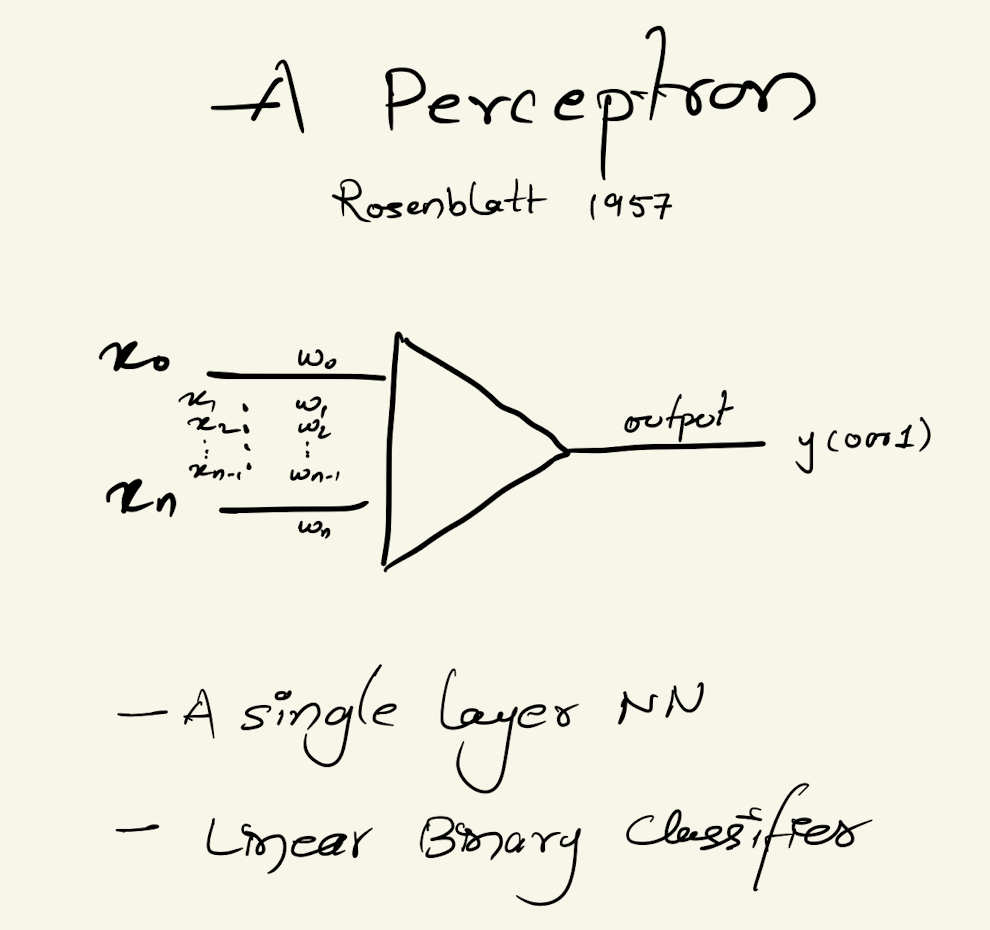 A Perceptron
Rosenblatt 1957
x₀ w₀
x₁ w₁
x₂ w₂
⋮ ⋮
xₙ₋₁ wₙ₋₁
xₙ wₙ
output
y (0 or 1)
— A single layer NN
— Linear Binary Classifier